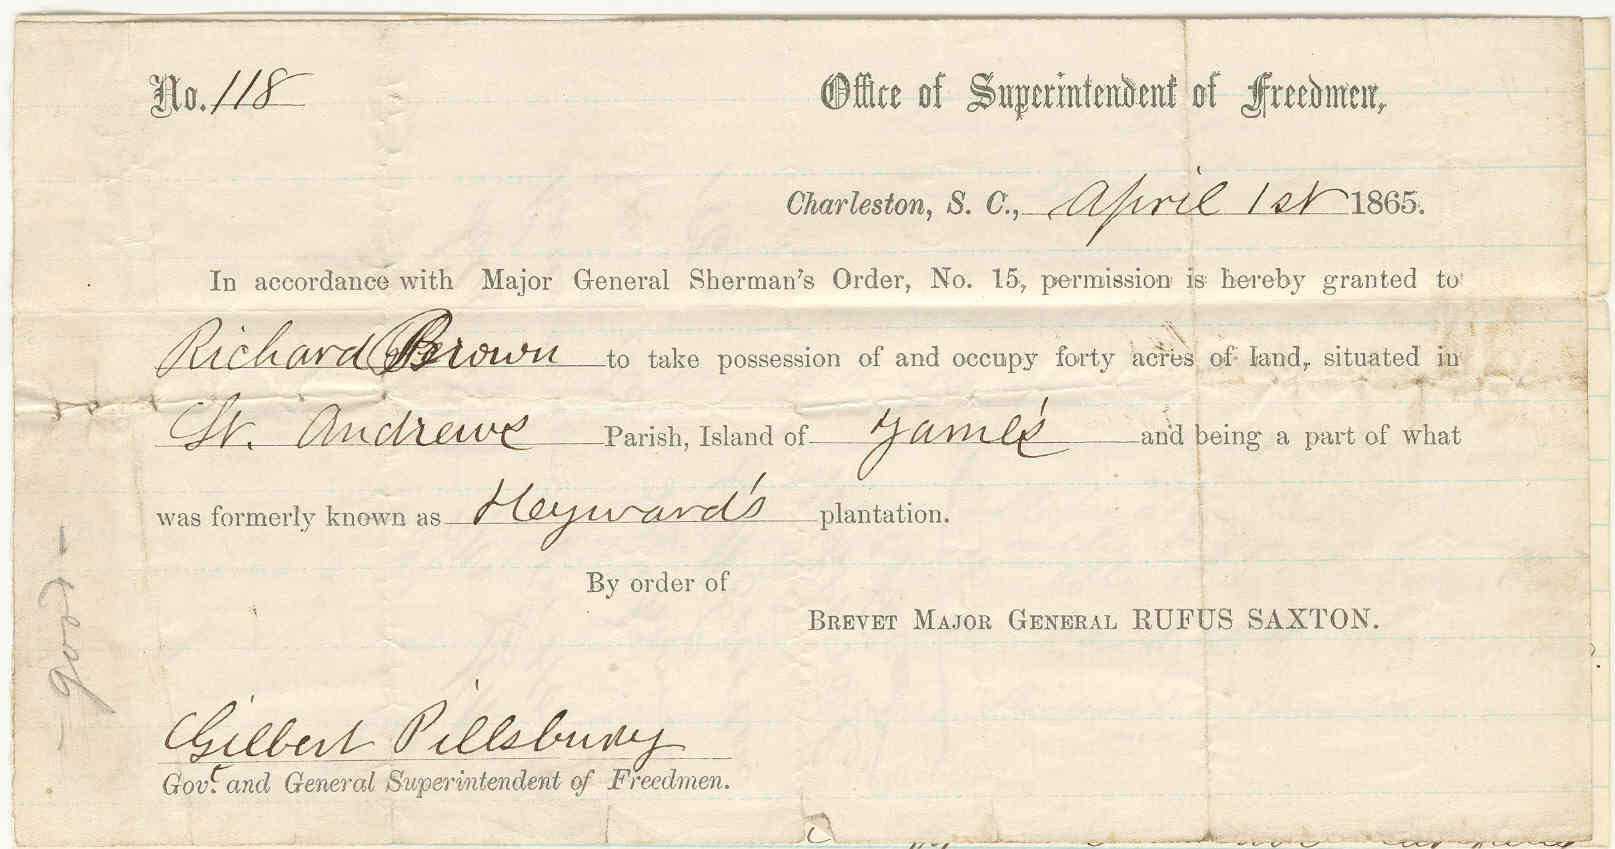 No. 118
Office of Superintendent of Freedmen,
Charleston, S. C., April 1st 1865.
In accordance with Major General Sherman's Order, No. 15, permission is hereby granted to
Richard Brown to take possession of and occupy forty acres of land, situated in
St. Andrews Parish, Island of James and being a part of what
was formerly known as Heyward's plantation.
By order of
BREVET MAJOR GENERAL RUFUS SAXTON.
Gilbert Pillsbury
Govt. and General Superintendent of Freedmen.
good -